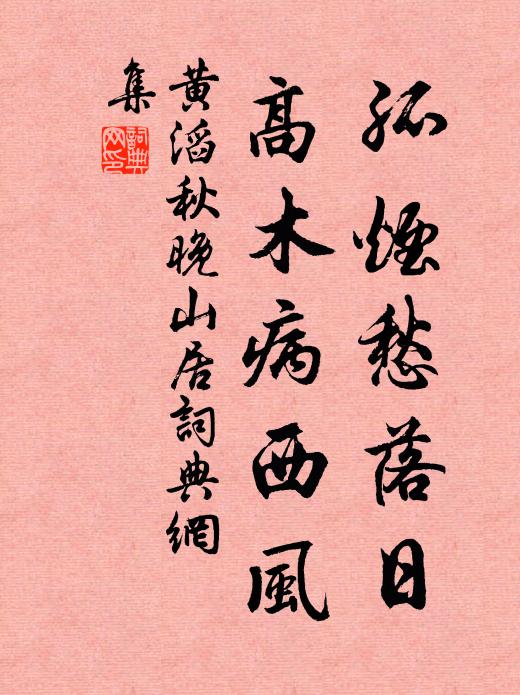 孤煙愁落日
高木病西風
黃滔秋晚山居詞典網
集
詞典網印